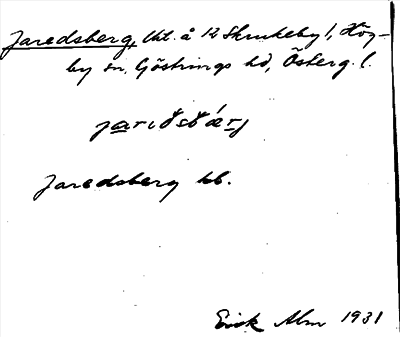 Jaredsberg, lht. å 12 Skrukeby l, Hög-
by sn, Göstrings hd, Österg. l.
Jaredsberg kb.
Erik Alm 1931